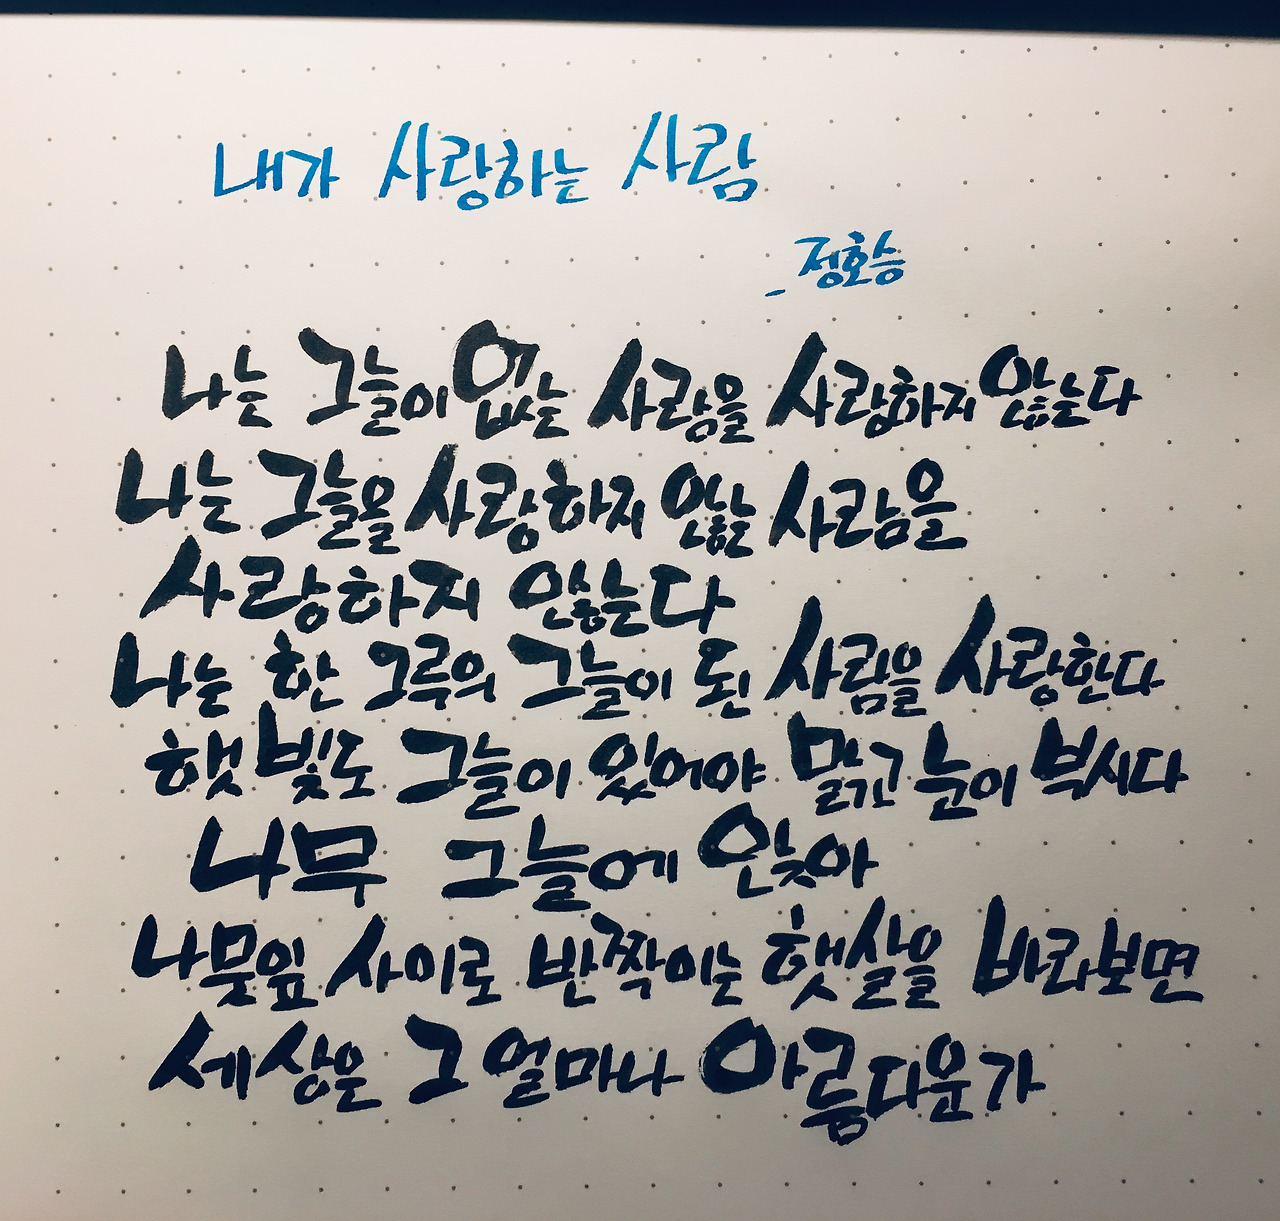 내가 사랑하는 사람
- 정호승
나는 그늘이 없는 사람을 사랑하지 않는다
나는 그늘을 사랑하지 않는 사람을
사랑하지 않는다
나는 한 그루의 그늘이 된 사람을 사랑한다
햇빛도 그늘이 있어야 맑근 눈이 부시다
나무 그늘에 앉아
나뭇잎 사이로 반짝이는 햇살을 바라보면
세상은 그 얼마나 아름다운가